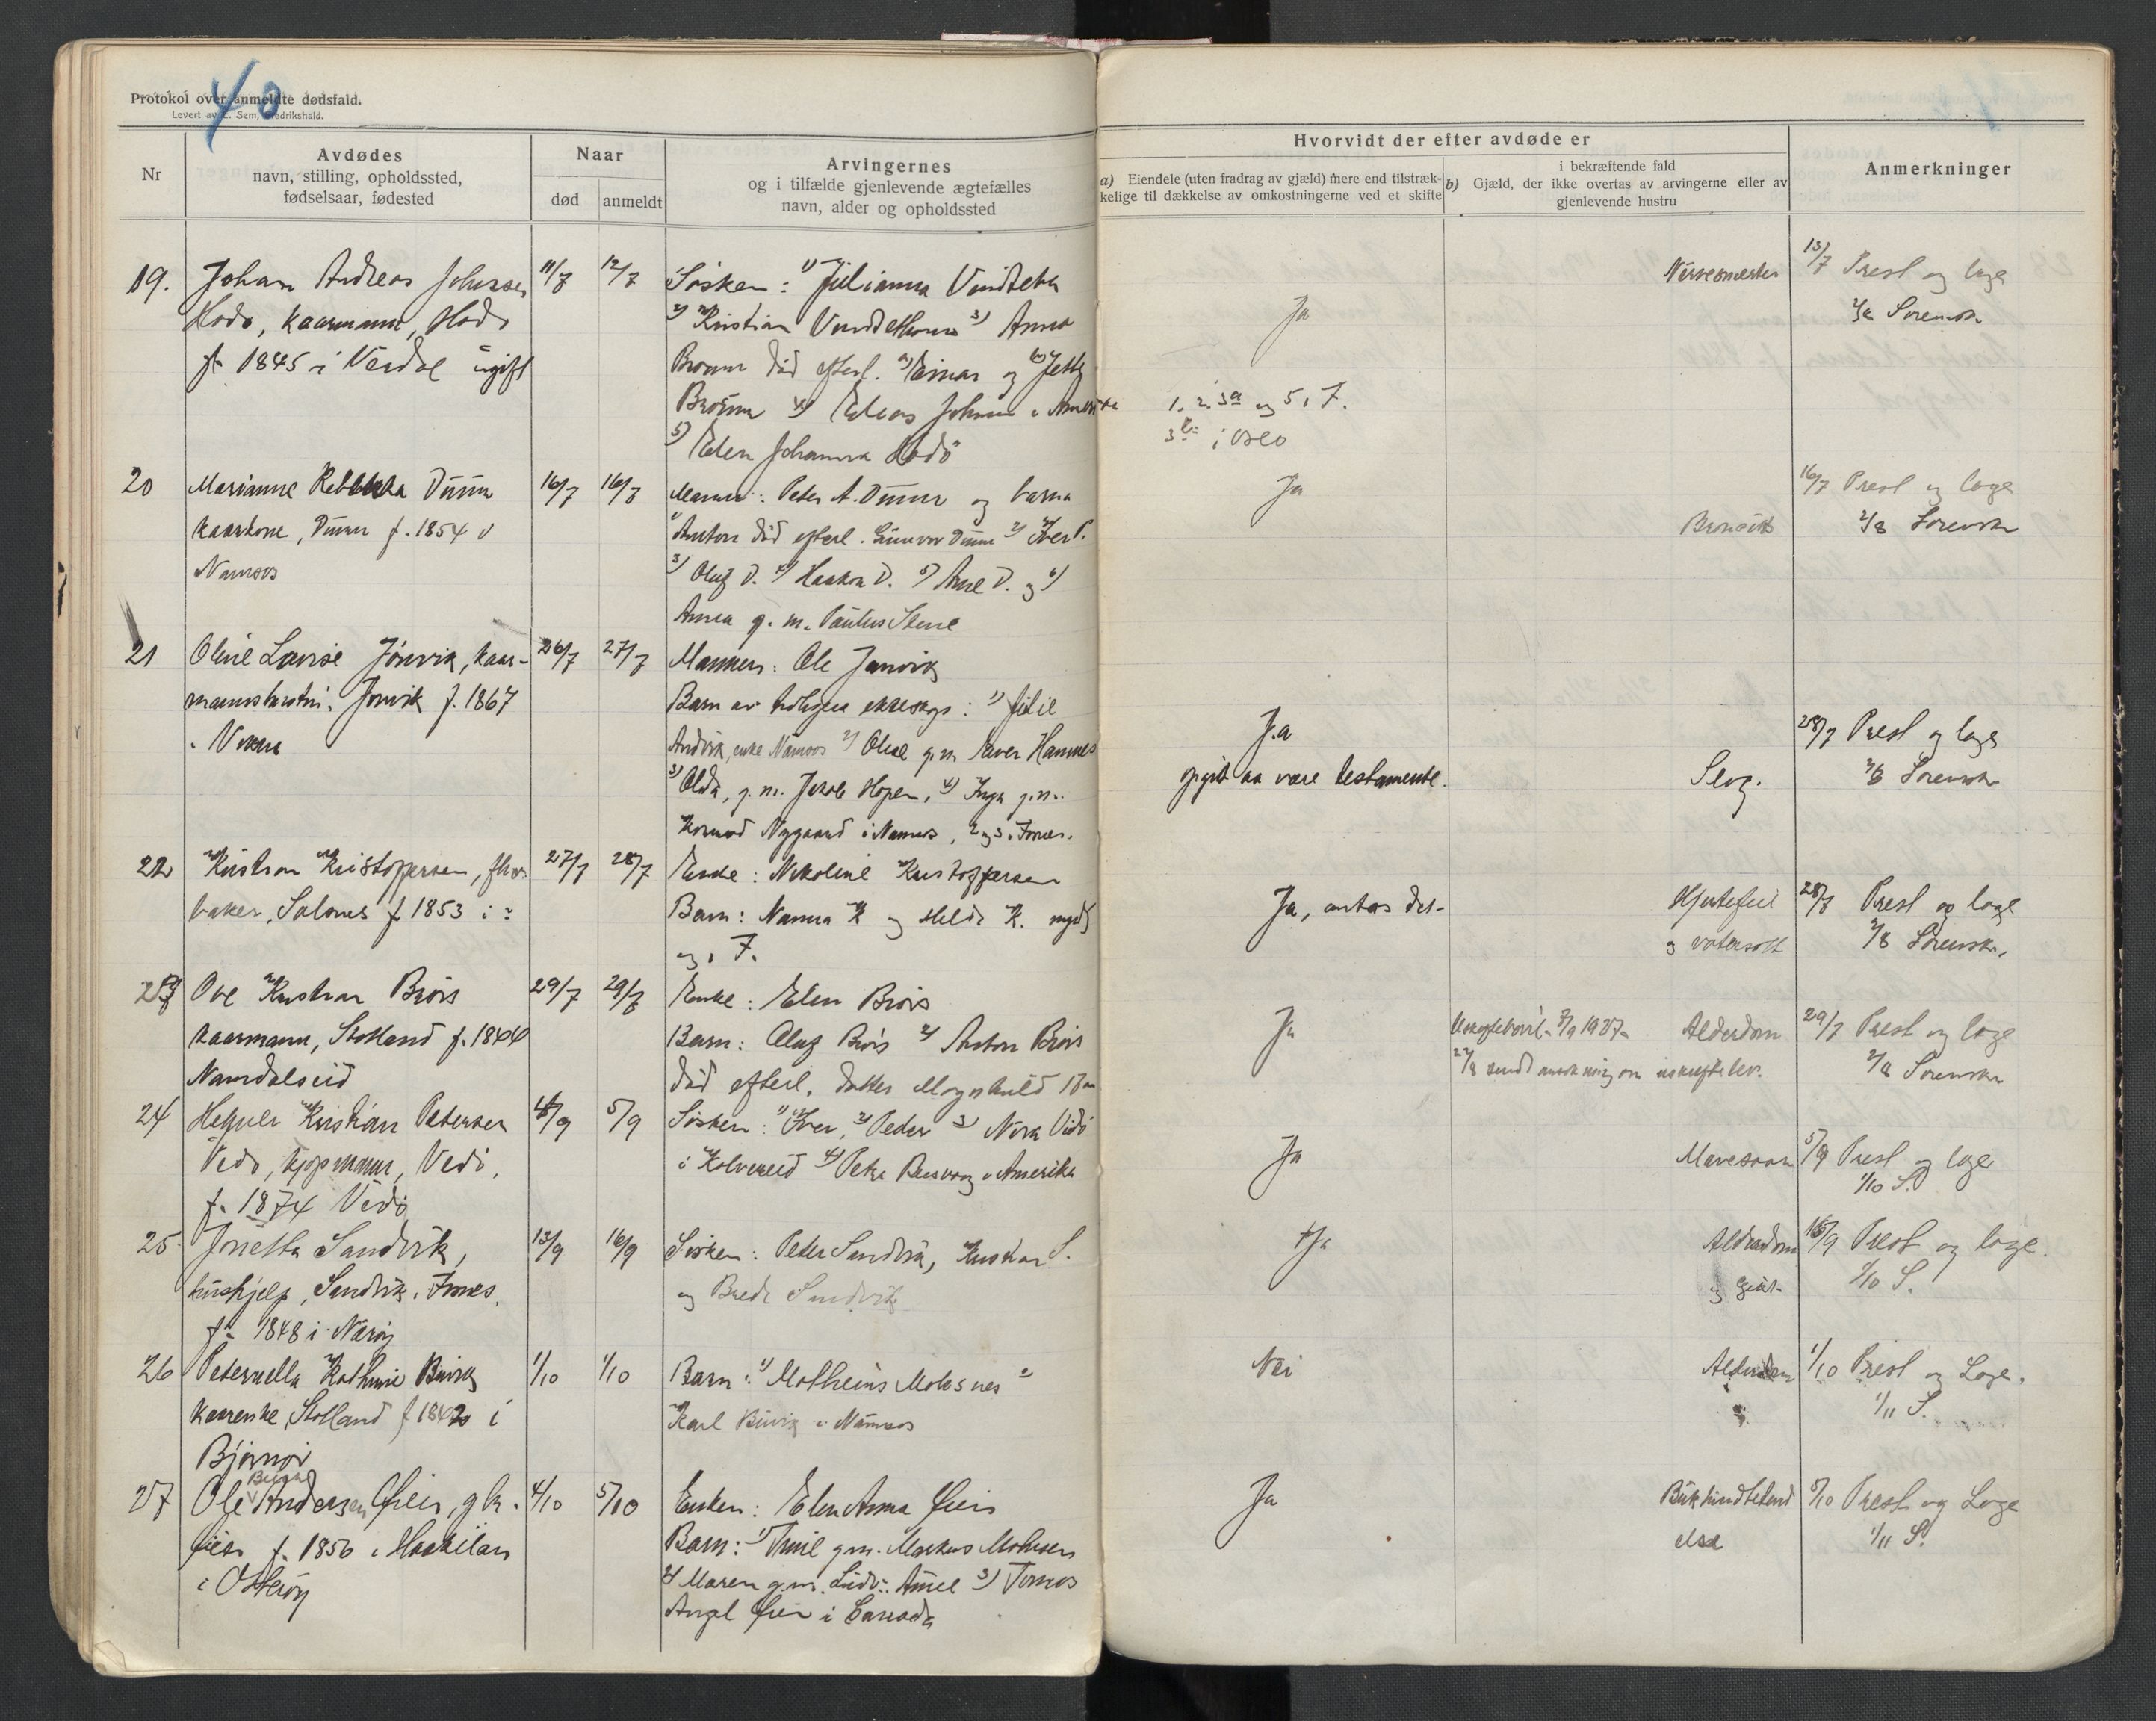 40
Protokol over anmeldte dødsfald.
Levert av E. Sem, Fredrikshald.
Nr
Avdødes
navn, stilling, opholdssted,
fødselsaar, fødested
Naar
død
anmeldt
Arvingernes
og i tilfælde gjenlevende ægtefælles
navn, alder og opholdssted
Hvorvidt der efter avdøde er
a) Eiendele (uten fradrag av gjæld) mere end tilstræk-
kelige til dækkelse av omkostningerne ved et skifte
i bekræftende fald
b) Gjæld, der ikke overtas av arvingerne eller av
gjenlevende hustru
Anmerkninger
19.
Johan Andreas Johnsen
Hodø, kaarmann, Hodø
f. 1845 i Verdal ugift
11/7
12/7
Søsken: 1) Julianna
2) Kristian 3) Anna
Brønn død efterl. a) Einar og b) Jetty
Brønn 4) Elias Johnsen i Amerika
5) Elen Johanna Hodø
Ja
1. 2. 3a og 5 i F.
3b i Oslo
13/7 Prest og lage
2/8 Sorenskr
20
Marianne Rebekka Duun
kaarkone, Duun f. 1854 i
Namsos
16/7
16/7
Mann: Peter A. Duun og barna
1) Anton død efterl. Gunvor Duun 2) Iver D.
3) Olaf D. 4) Haakon D. 5) Arne D. og 6)
Anna g. m. Paulus Stene
Ja
16/7 Prest og lage
2/8 Sorenskr
21
Oline Lovise Jønvik, kaar-
mannshustru, Jønvik f. 1867
i Vikna
26/7
27/7
Mannen: Ole Jønvik
Barn av tidligere ekteskap: 1) Julie
Andvik, enke Namsos 2) Oline g. m. Iver Hamnes
3) Olda, g. m. Jakob Hopen, 4) Inga g. m.
Nygaard i Namsos, 2 og 3 i Fosnes.
Ja
opgit aa være testamente.
Slag.
28/7 Prest og lage
2/8 Sorenskr
22
Kristian Kristoffersen,
Salsnes f. 1853 i :
27/7
28/7
Enke: Nikoline Kristoffersen
Barn: Nanna K og Hilda K. myndig
og i F.
Ja, antas det
Hjertefeil
og vatersott
28/7 Prest og lage
2/8 Sorenskr.
23
Ove Kristian Brørs
kaarmann, Stolland f. 1844
Namdalseid
29/7
29/7
Enke: Elen Brørs
Barn: Olaf Brørs 2) Anton Brørs
død efterl. datter Magnhild
Ja
Uskiftebevil. 7/9 1927
Alderdom
29/7 Prest og lage
2/8 Sorenskr
24
Kristian Petersen
Vedø, kjøpmann, Vedø,
f. 1874 Vedø
4/9
5/9
Søsken: 1) Iver, 2) Peder 3) Nora Vidø
i Kolvereid 4) Petra i Amerika
Ja
Mavesaar
5/9 Prest og lage
1/10 S.
25
Jonetta Sandvik,
hushjelp, Sandvik i Fosnes,
f. 1848 i Nærøy
13/9
16/9
Søsken: Peter Sandvik, Kristian S.
og Brede Sandvik
Ja
Alderdom
og gikt
16/9 Prest og lage.
1/10 S.
26
Peternella Kathrine Buvik
kaarenke, Stolland f 1842 i
Bjørnør
1/10
1/10
Barn: 1) Motheus Moksnes 2
Karl Buvik i Namsos
Nei
Alderdom
1/10 Prest og Lage.
1/11 S.
27
Ole Andersen Øien, gb.
Øien f. 1856 i Haabilan
i Otterøy
4/10
5/10
Enken: Elen Anna Øien
Barn: 1) g. m. Markus Mohnsen
2) Maren g. m. 3) Tomas
Øien i Canada
Ja
Bukhindebetend
else
5/10 Prest og Lage
1/11 S.